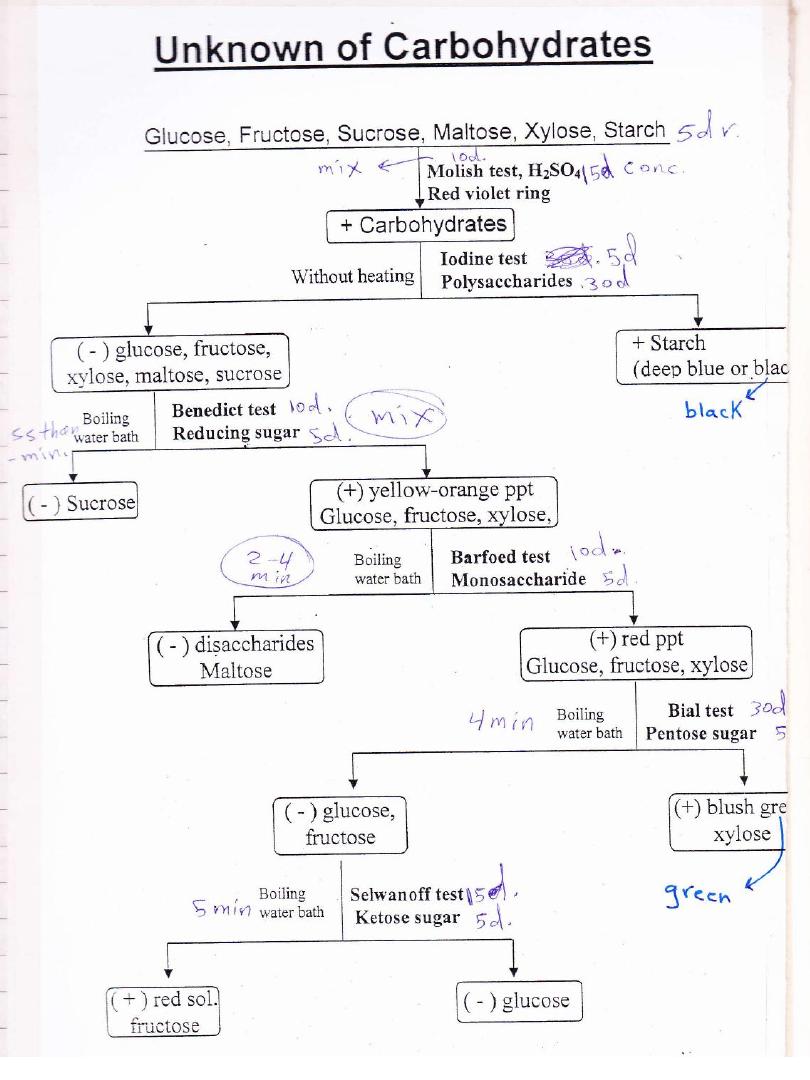 Unknown of Carbohydrates
Glucose, Fructose, Sucrose, Maltose, Xylose, Starch 5d
mix 10d.
Molish test, H₂SO₄ 15d conc.
Red violet ring
+ Carbohydrates
Without heating
Iodine test 5d
Polysaccharides 30d
( - ) glucose, fructose,
xylose, maltose, sucrose
+ Starch
(deep blue or blac
black
Boiling
water bath
Benedict test 10d.
Reducing sugar 5d.
mix
min.
( - ) Sucrose
(+) yellow-orange ppt
Glucose, fructose, xylose,
2-4
min
Boiling
water bath
Barfoed test 10d
Monosaccharide 5d.
( - ) disaccharides
Maltose
(+) red ppt
Glucose, fructose, xylose
4 min
Boiling
water bath
Bial test 30d
Pentose sugar 5
( - ) glucose,
fructose
(+) blush gre
xylose
green
5 min
Boiling
water bath
Selwanoff test 15d.
Ketose sugar 5d.
( + ) red sol.
fructose
( - ) glucose